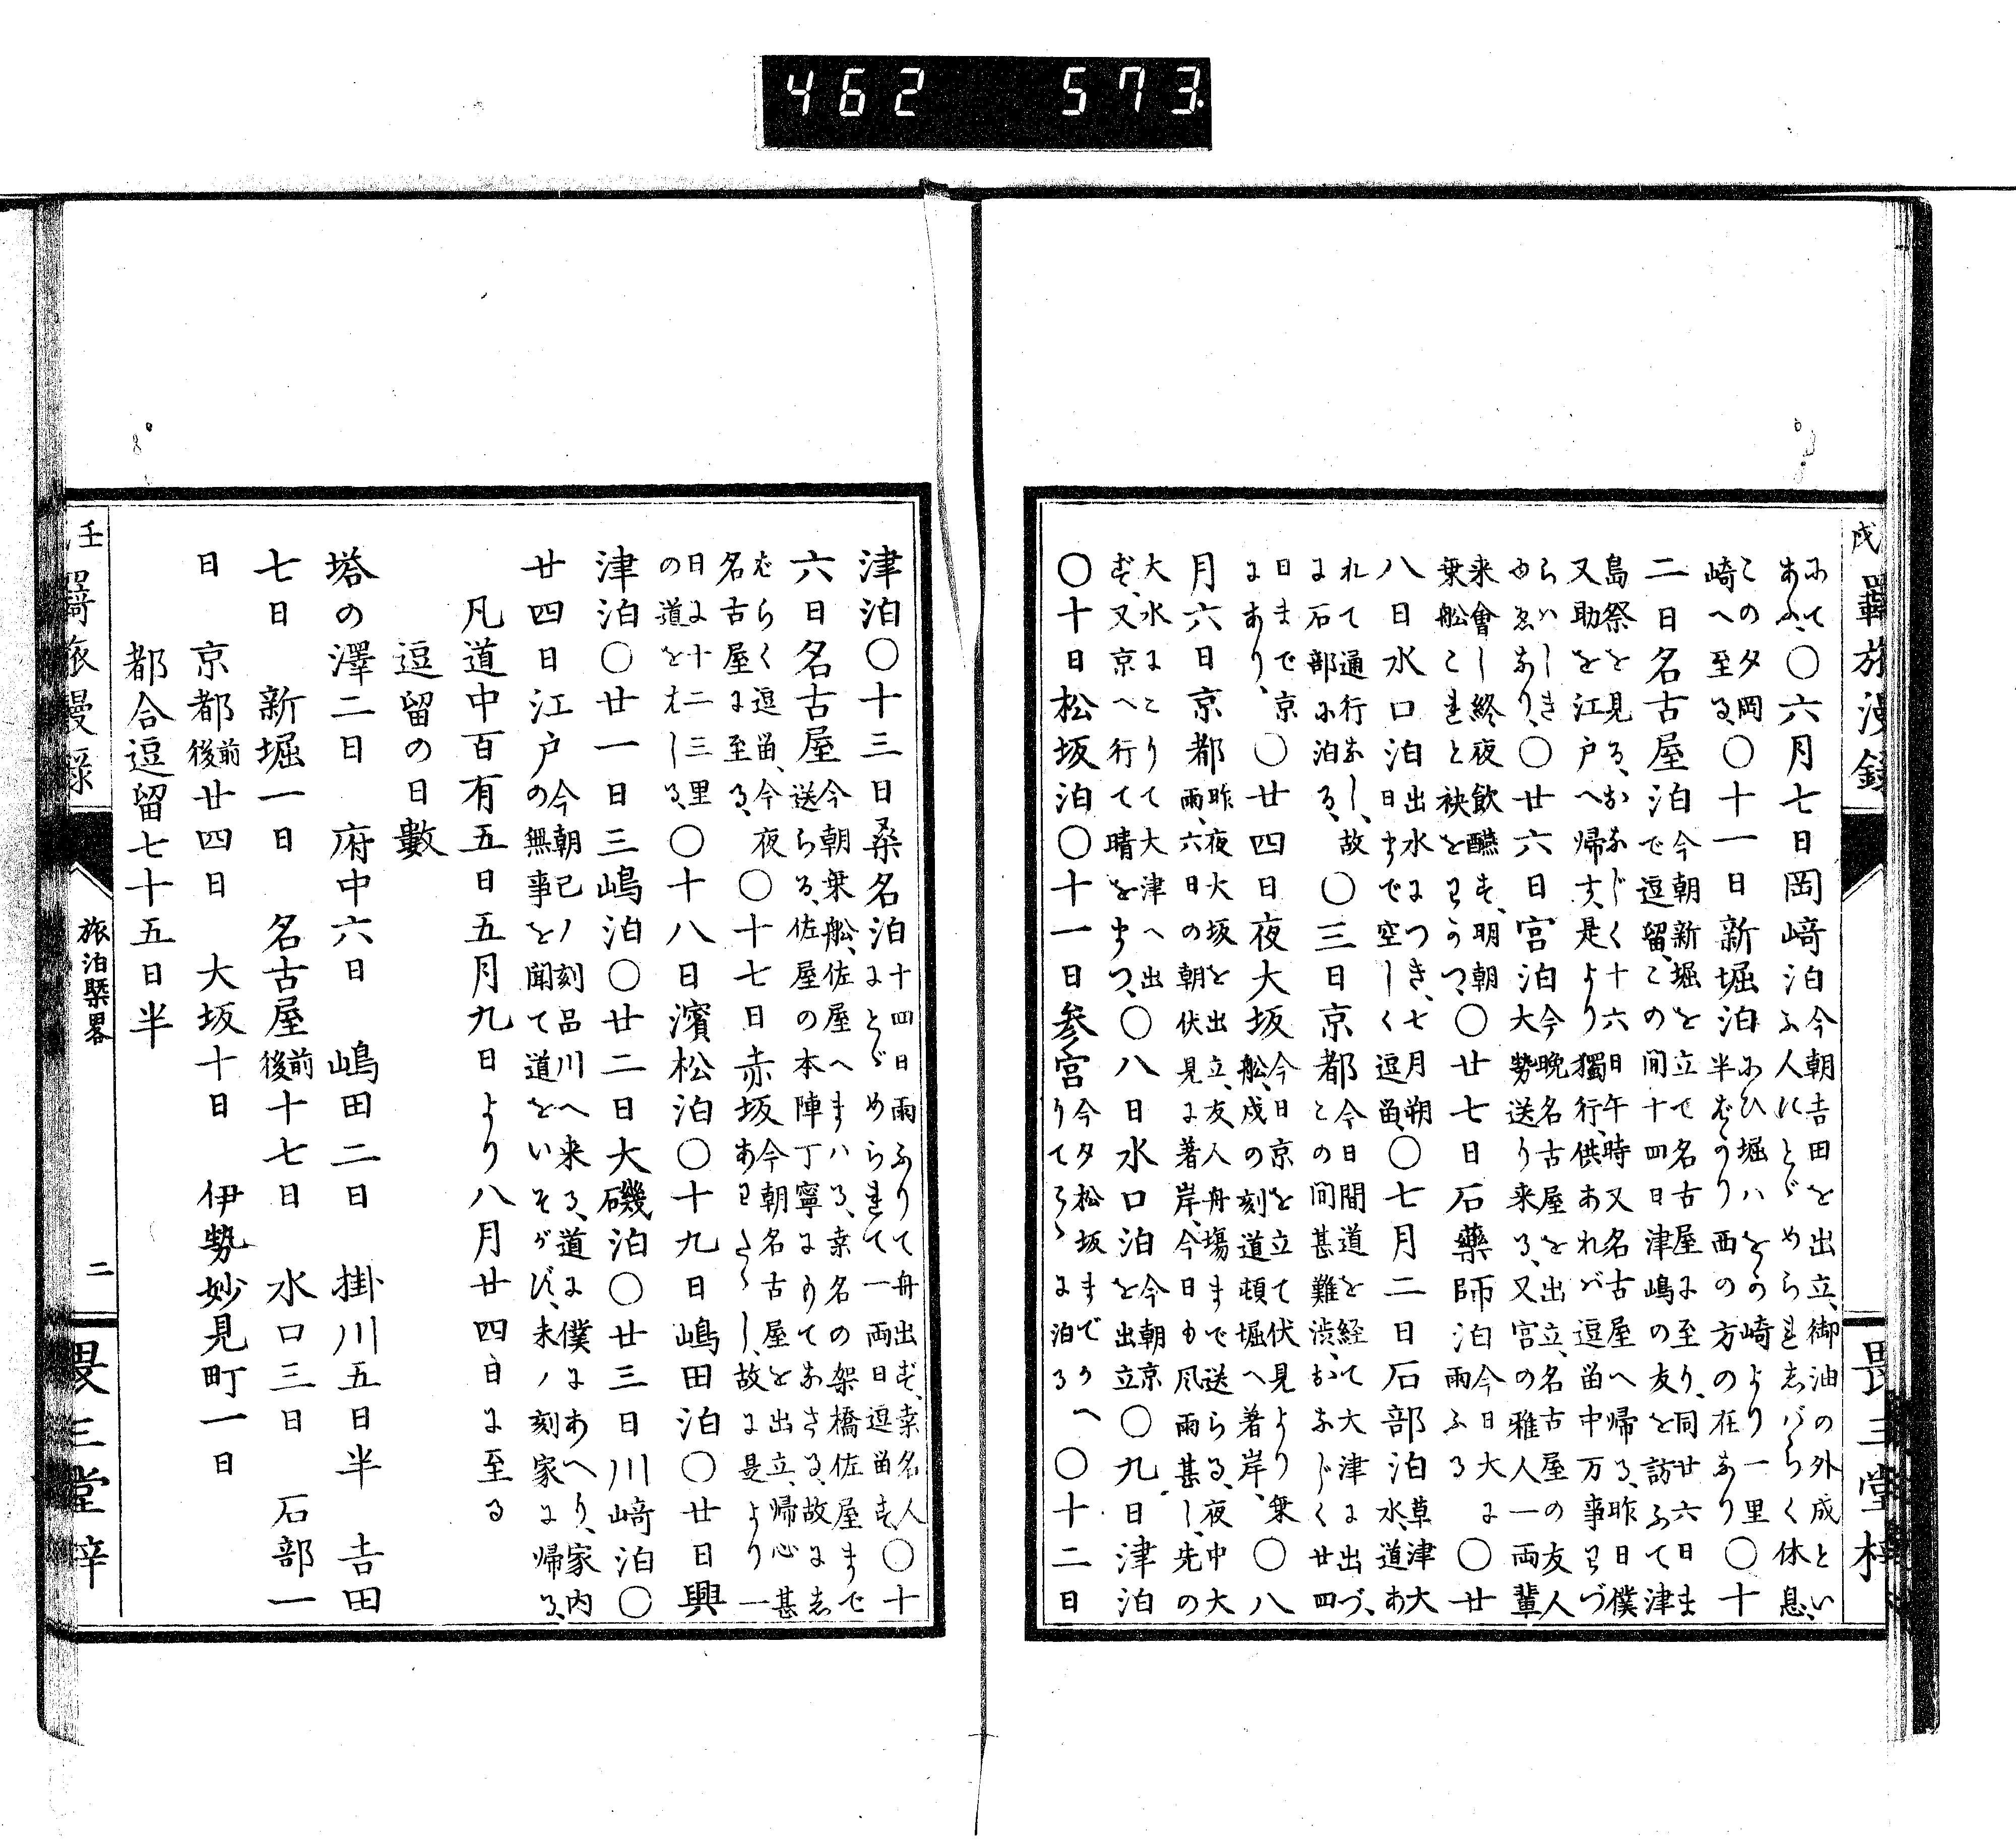 462 573
戌 羇旅漫録
畏三堂梓
みて
あふ、〇六月七日岡﨑泊今朝吉田を出立、御油の外成とい
ふ人にとゞめられしバらく休息、
このタ岡
崎へ至る、〇十一日新堀泊あひ堀ハをの崎より一里
半ばかり西の方の在なり〇十
二日名古屋泊今朝新堀を立て名古屋に至り、同廿六日ま
で逗留、この間十四日津嶋の友を訪ふて津
島祭を見る、おなじく十六日午時又名古屋へ帰る、昨日僕
又助を江戸へ帰す、是より獨行、供あれバ逗畄中万事わづ
らハしき
ゆゑなり、〇廿六日宮泊今晩名古屋を出立、名古屋の友人
大勢送り来る、又宮の雅人一両輩
来會し終夜飲醼す、明朝
乗船これと袂をわかつ、〇廿七日石藥師泊今日大に
雨ふる〇廿
八日水口泊出水につき、七月朔
日まで空しく逗畄、〇七月二日石部泊草津大
水、道あ
れて通行なし、故
に石部に泊る、〇三日京都今日間道を経て大津に出づ、
との間甚難渋、おなじく廿四
日まで京
にあり、〇廿四日夜大坂今日京を立て伏見より乗
船、戌の刻道頓堀へ著岸、〇八
月六日京都昨夜大坂を出立、友人舟場まで送らる、夜中大
雨、六日の朝伏見に著岸、今日も風雨甚し、先の
大水にとりて大津へ出
ず、又京へ行て晴をまつ、〇八日水口泊今朝京
を出立〇九日津泊
〇十日松坂泊〇十一日参宮今夕松坂まで
に泊る〇十二日
津泊〇十三日桑名泊十四日雨ふりて舟出ず、桑名人
にとゞめられて一両日逗畄す、〇十
六日名古屋今朝乗舩、佐屋へまハる、桑名の架橋佐屋まで
送らる、佐屋の本陣丁寧にもてなさる、故にし
ばらく逗畄、今夜
名古屋に至る、〇十七日赤坂今朝名古屋を出立、帰心甚
し、故に是より一
日に十二三里
の道をはしる、〇十八日濱松泊〇十九日嶋田泊〇廿日興
津泊〇廿一日三嶋泊〇廿二日大磯泊〇廿三日川﨑泊〇
廿四日江戸今朝巳ノ刻品川へ来る、道に僕にあへり、家内
の無事を聞て道をいそがず、未ノ刻家に帰る、
凡道中百有五日五月九日より八月廿四日に至る
逗留の日數
塔の澤二日　府中六日　嶋田二日　掛川五日半　吉田
七日　新堀一日　名古屋前後十七日　水口三日　石部一
日　京都前後廿四日　大坂十日　伊勢妙見町一日
都合逗留七十五日半
壬 羇旅漫録
旅泊槩畧
二
畏三堂梓